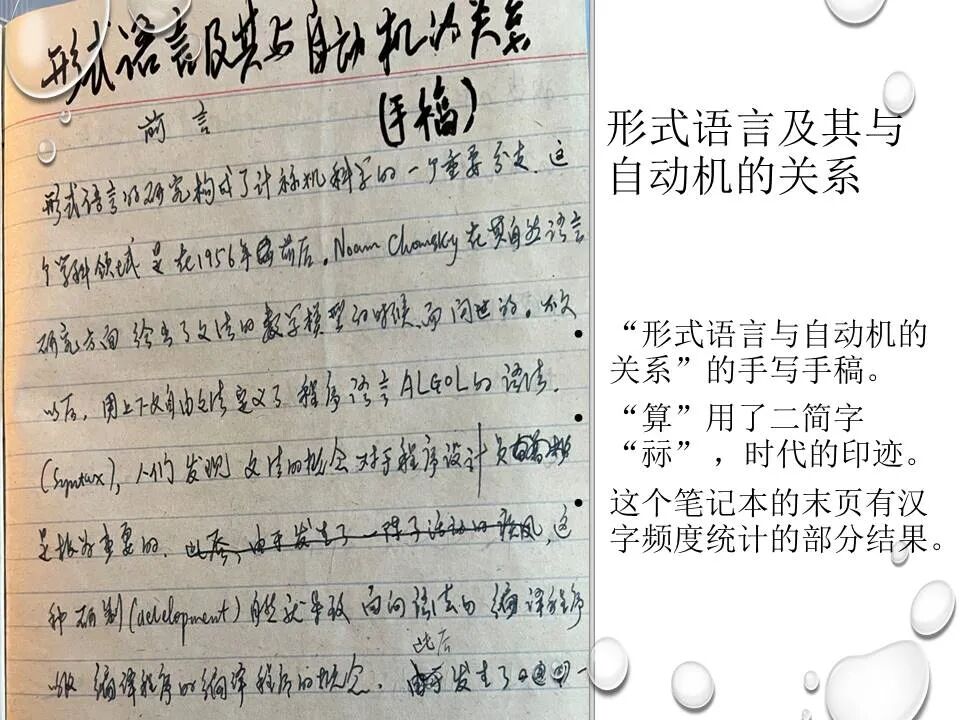 形式语言及其与自动机的关系
(手稿)
前言
形式语言的研究构成了计祘机科学的一个重要分支.这
个学科领域是在1956年前后,Noam Chomsky在其自然语言
研究方面给出了文法的数学模型的时候而问世的。
以后,用上下文自由文法定义了程序语言ALGOL的语法.
(Syntax),人们发现文法的概念对于程序设计员
是极为重要的.此后,由于发生了一阵子活动的疾风,这
种研制(development)自然就导致面向语法的编译程序
以及编译程序的编译程序的概念.
此后
发生了 一
形式语言及其与
自动机的关系
• “形式语言与自动机的
关系”的手写手稿。
• “算”用了二简字
“祘”,时代的印迹。
• 这个笔记本的末页有汉
字频度统计的部分结果。